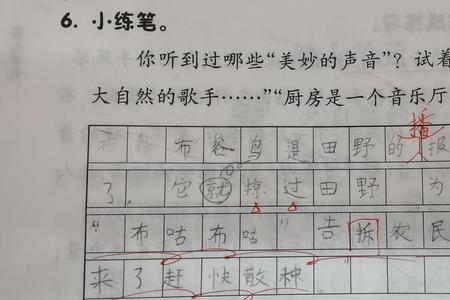 6. 小练笔。
你听到过哪些“美妙的声音”？试着
大自然的歌手……”“厨房是一个音乐厅
布谷鸟是田野的播报
了，它就掠过田野 为
“布咕布咕”告拆农民
来了赶快散种